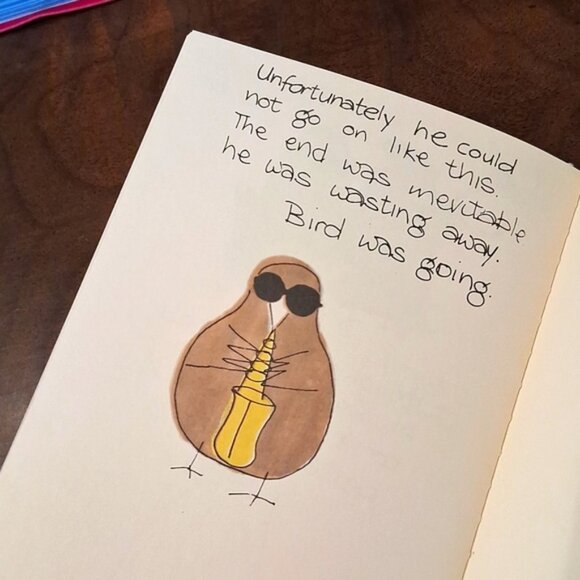 Unfortunately he could
not go on like this.
The end was inevitable
he was wasting away.
Bird was going.